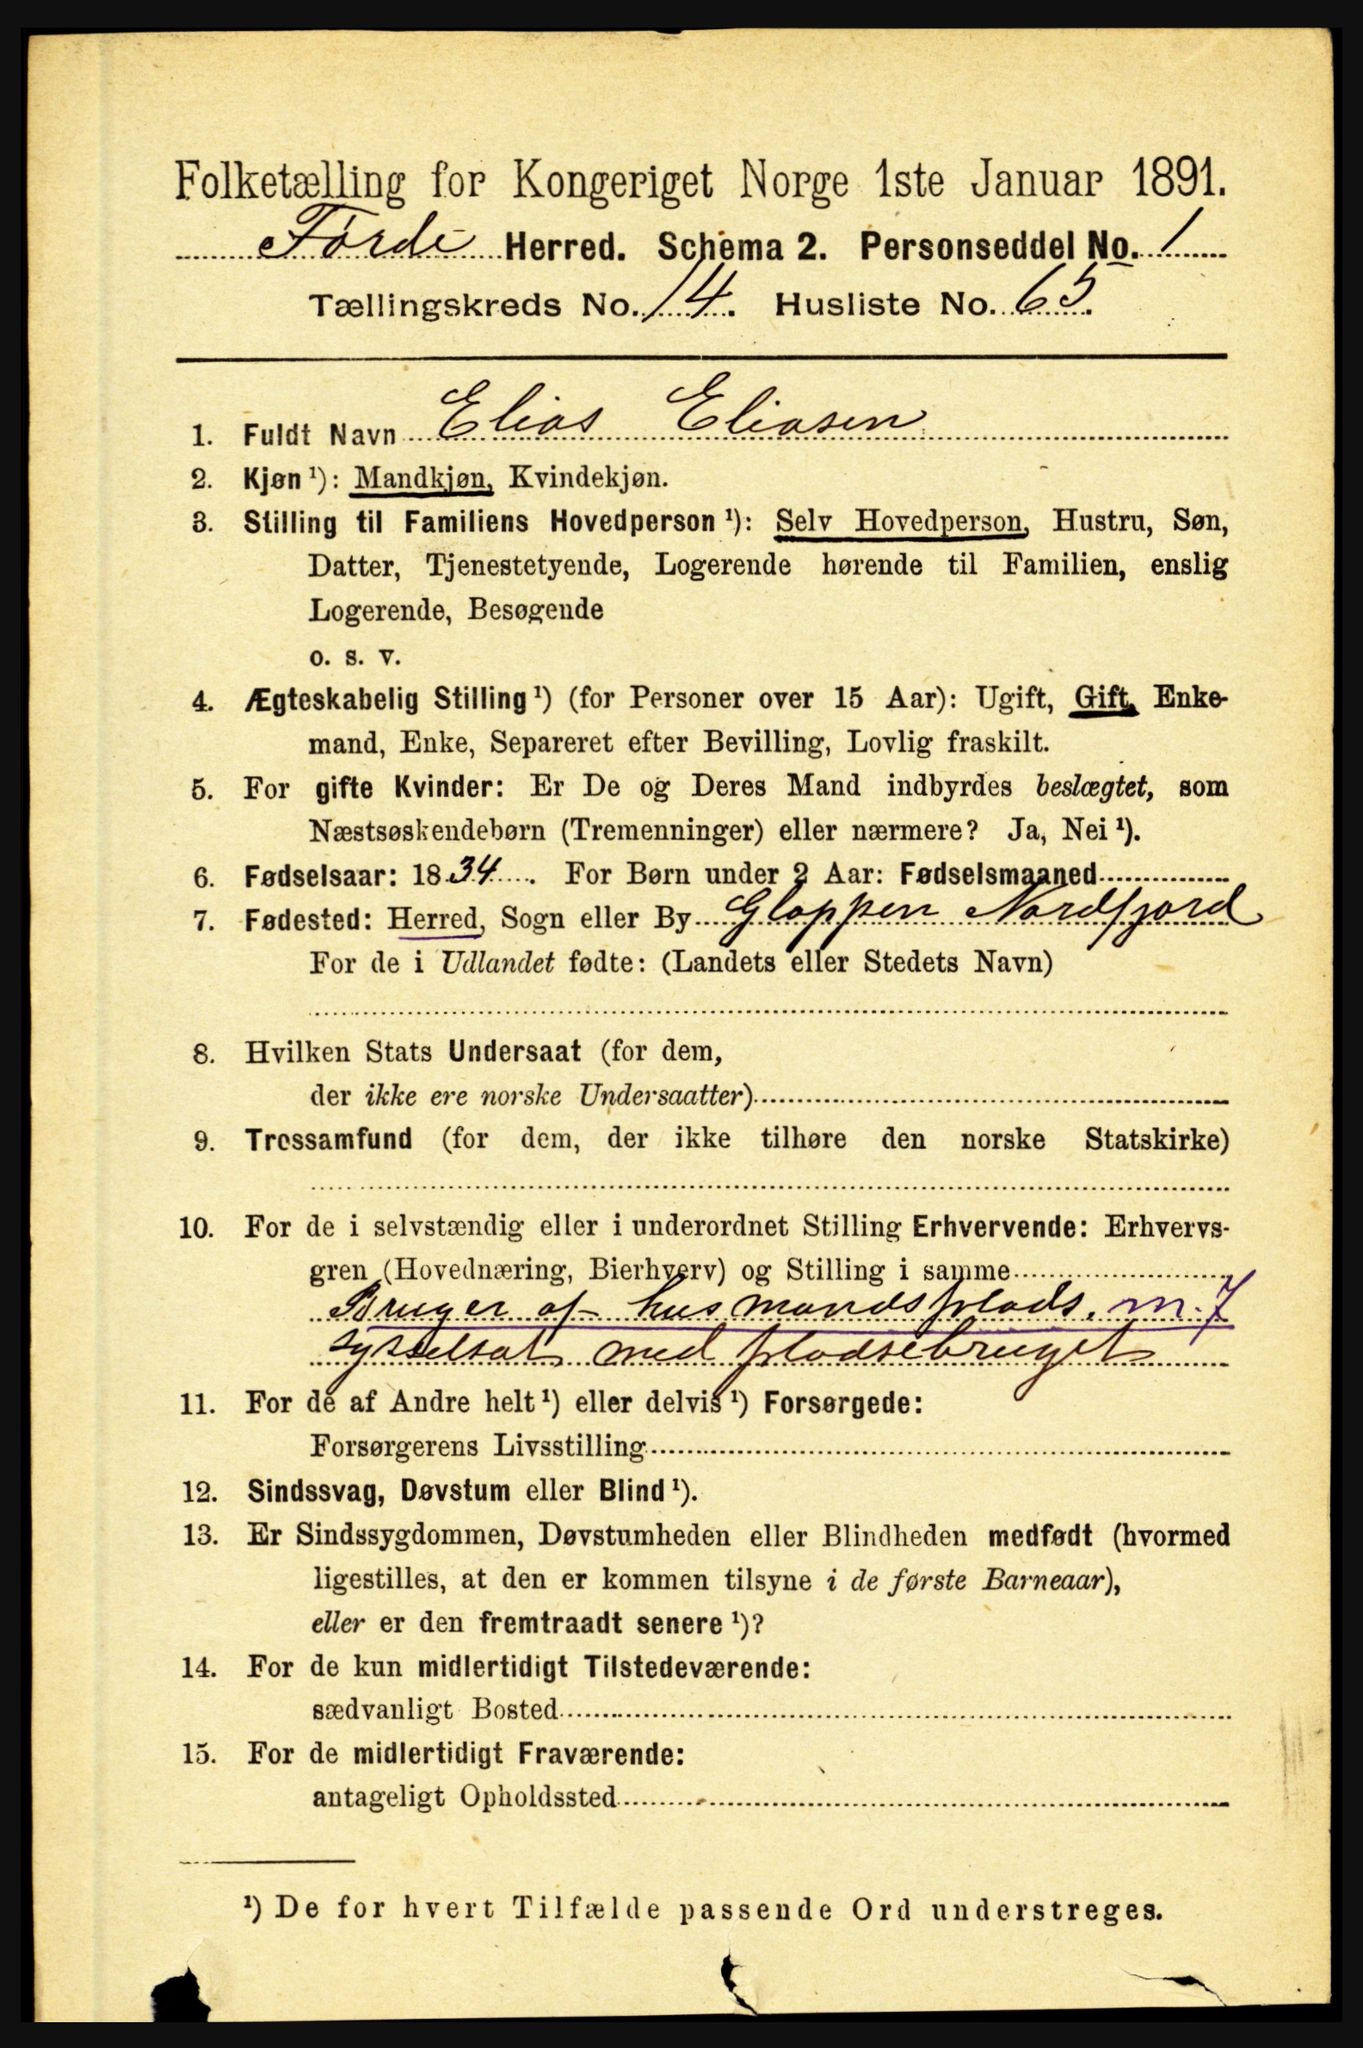 Folketælling for Kongeriget Norge 1ste Januar 1891.
Førde Herred. Schema 2. Personseddel No. 1
Tællingskreds No. 14. Husliste No. 65.
1. Fuldt Navn Elias Eliasen
2. Kjøn ¹): Mandkjøn, Kvindekjøn.
3. Stilling til Familiens Hovedperson ¹): Selv Hovedperson, Hustru, Søn,
Datter, Tjenestetyende, Logerende hørende til Familien, enslig
Logerende, Besøgende
o. s. v.
4. Ægteskabelig Stilling ¹) (for Personer over 15 Aar): Ugift, Gift, Enke-
mand, Enke, Separeret efter Bevilling, Lovlig fraskilt.
5. For gifte Kvinder: Er De og Deres Mand indbyrdes beslægtet, som
Næstsøskendebørn (Tremenninger) eller nærmere? Ja, Nei ¹).
6. Fødselsaar: 1834. For Børn under 2 Aar: Fødselsmaaned
7. Fødested: Herred, Sogn eller By Gloppen Nordfjord
For de i Udlandet fødte: (Landets eller Stedets Navn)
8. Hvilken Stats Undersaat (for dem,
der ikke ere norske Undersaatter)
9. Trossamfund (for dem, der ikke tilhøre den norske Statskirke)
10. For de i selvstændig eller i underordnet Stilling Erhvervende: Erhvervs-
gren (Hovednæring, Bierhverv) og Stilling i samme
Bruger af husmandsplads. m. 7
sysselsat med pladsebruget
11. For de af Andre helt ¹) eller delvis ¹) Forsørgede:
Forsørgerens Livsstilling
12. Sindssvag, Døvstum eller Blind ¹).
13. Er Sindssygdommen, Døvstumheden eller Blindheden medfødt (hvormed
ligestilles, at den er kommen tilsyne i de første Barneaar),
eller er den fremtraadt senere ¹)?
14. For de kun midlertidigt Tilstedeværende:
sædvanligt Bosted
15. For de midlertidigt Fraværende:
antageligt Opholdssted
¹) De for hvert Tilfælde passende Ord understreges.